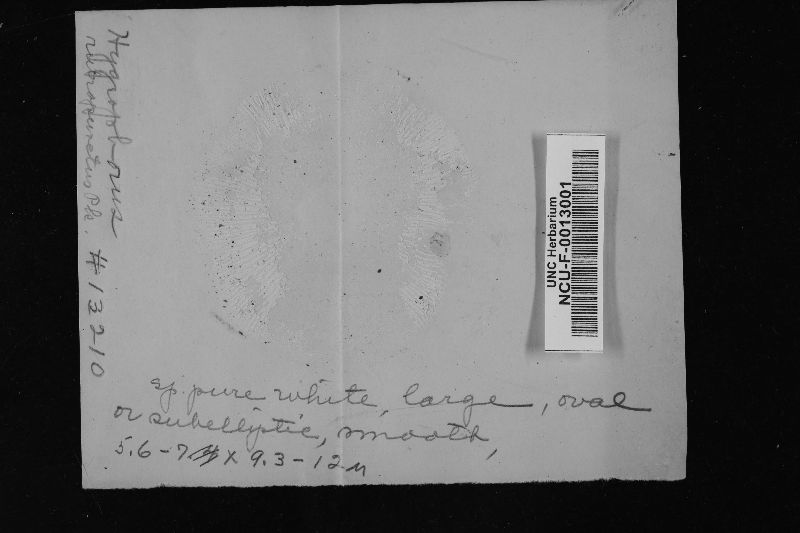 Hygrophorus
rubropunctus Pk. #13210
UNC Herbarium
NCU-F-0013001
sp. pure white, large, oval
or subelliptic, smooth,
5.6-7 x 9.3-12µ